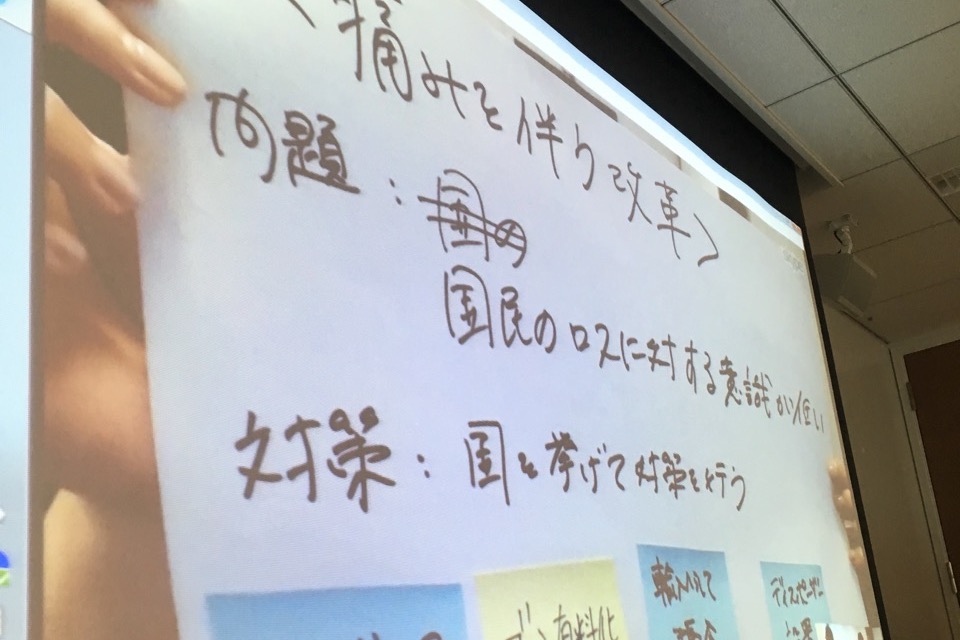 〈痛みを伴う改革〉
問題：国の
国民のロスに対する意識が低い
対策：国を挙げて対策を行う
有料化
輸入へって
ディスポーザー